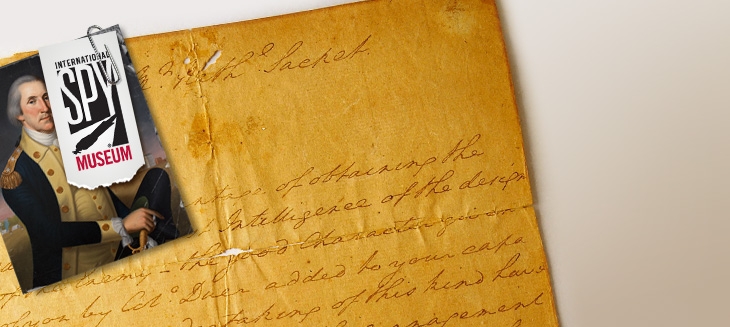 INTERNATIONAL
SPY
MUSEUM
Mr. Nath.l Sacket.
ntage of obtaining the
Intelligence of the design
of the Enemy – the good Character given
of you by Col.o Duer added to your capa
taking of this kind have
management